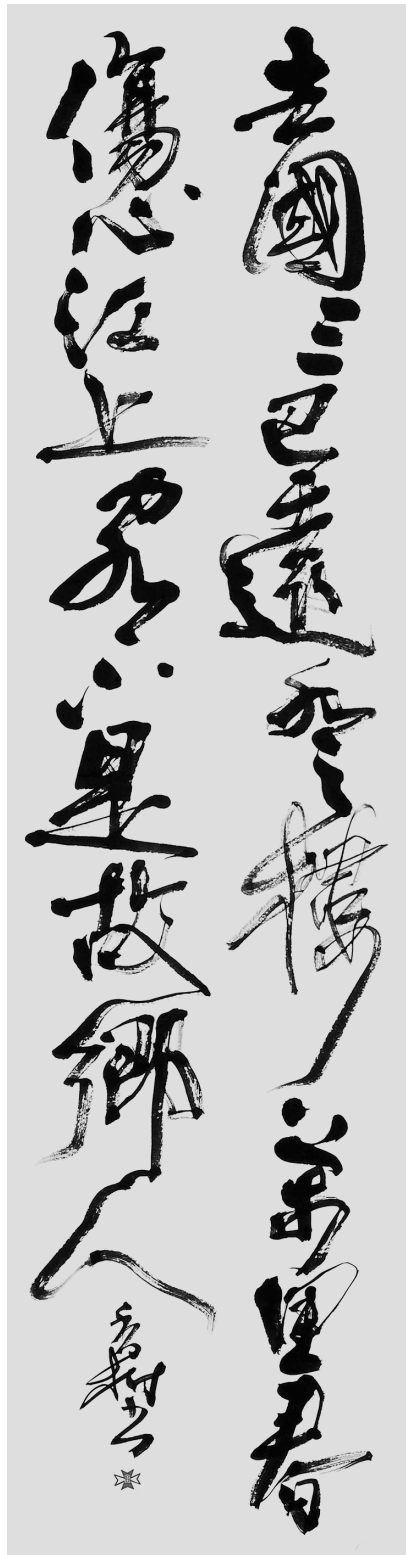 去國三巴遠登樓萬里春
傷心江上客不是故鄉人